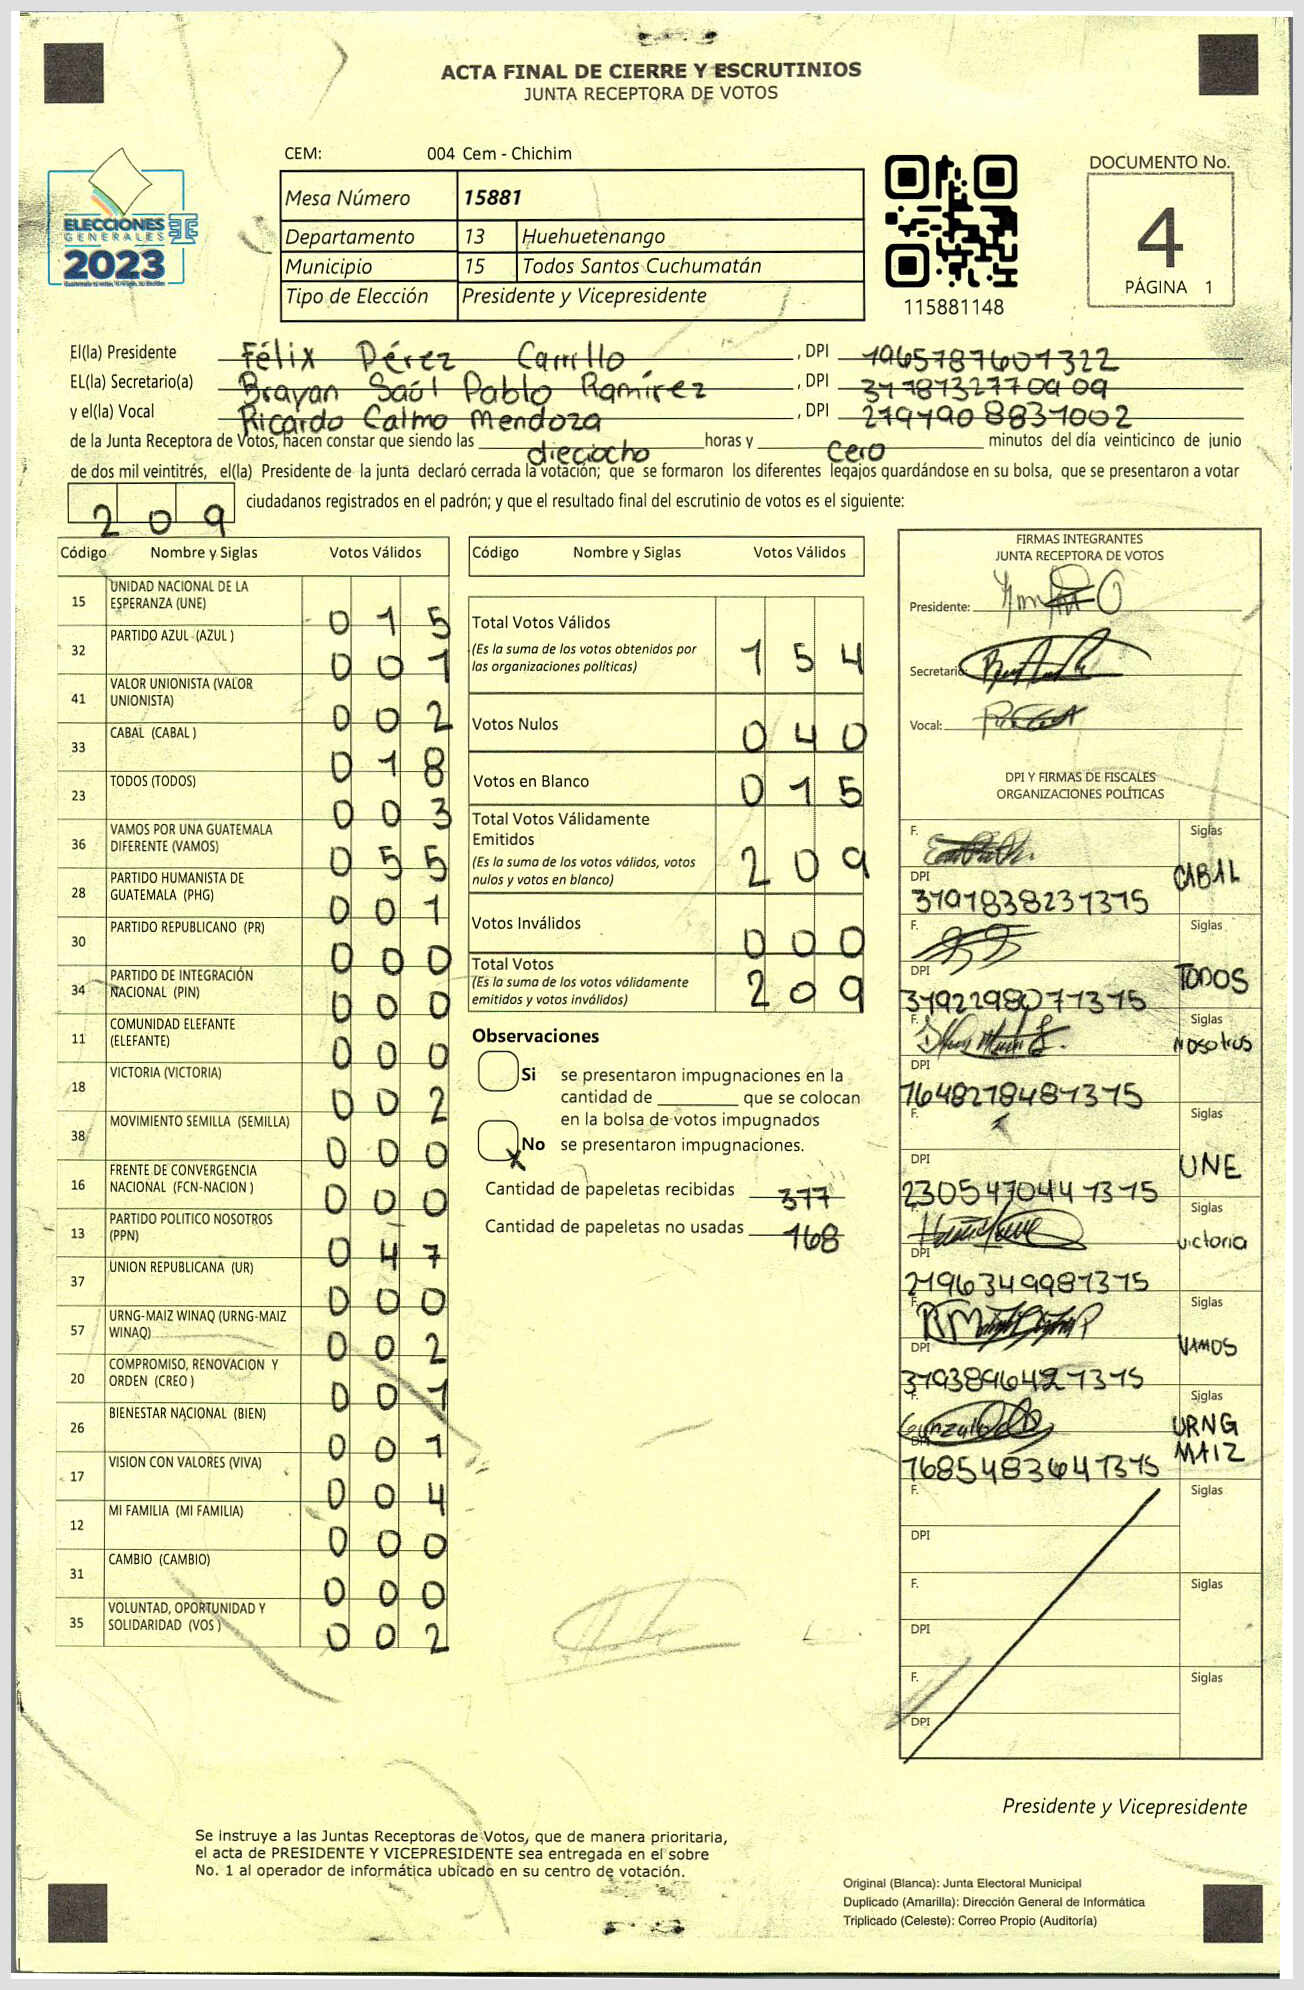 ACTA FINAL DE CIERRE Y ESCRUTINIOS
JUNTA RECEPTORA DE VOTOS
CEM: 004 Cem - Chichim
Mesa Número 15881
Departamento 13 Huehuetenango
Municipio 15 Todos Santos Cuchumatán
Tipo de Elección Presidente y Vicepresidente
ELECCIONES
GENERALES
2023
115881148
DOCUMENTO No.
4
PÁGINA 1
El(la) Presidente Félix Pérez Carrillo , DPI 1965787601322
EL(la) Secretario(a) Brayan Saúl Pablo Ramírez , DPI 3178732770909
y el(la) Vocal Ricardo Calmo Mendoza , DPI 2797908831002
de la Junta Receptora de Votos, hacen constar que siendo las dieciocho horas y cero minutos del día veinticinco de junio
de dos mil veintitrés, el(la) Presidente de la junta declaró cerrada la votación; que se formaron los diferentes legajos guardándose en su bolsa, que se presentaron a votar
209 ciudadanos registrados en el padrón; y que el resultado final del escrutinio de votos es el siguiente:
Código Nombre y Siglas Votos Válidos
15 UNIDAD NACIONAL DE LA ESPERANZA (UNE) 015
32 PARTIDO AZUL (AZUL ) 001
41 VALOR UNIONISTA (VALOR UNIONISTA) 002
33 CABAL (CABAL ) 018
23 TODOS (TODOS) 003
36 VAMOS POR UNA GUATEMALA DIFERENTE (VAMOS) 055
28 PARTIDO HUMANISTA DE GUATEMALA (PHG) 001
30 PARTIDO REPUBLICANO (PR) 000
34 PARTIDO DE INTEGRACIÓN NACIONAL (PIN) 000
11 COMUNIDAD ELEFANTE (ELEFANTE) 000
18 VICTORIA (VICTORIA) 002
38 MOVIMIENTO SEMILLA (SEMILLA) 000
16 FRENTE DE CONVERGENCIA NACIONAL (FCN-NACION ) 000
13 PARTIDO POLITICO NOSOTROS (PPN) 047
37 UNION REPUBLICANA (UR) 000
57 URNG-MAIZ WINAQ (URNG-MAIZ WINAQ) 002
20 COMPROMISO, RENOVACION Y ORDEN (CREO ) 001
26 BIENESTAR NACIONAL (BIEN) 001
17 VISION CON VALORES (VIVA) 004
12 MI FAMILIA (MI FAMILIA) 000
31 CAMBIO (CAMBIO) 000
35 VOLUNTAD, OPORTUNIDAD Y SOLIDARIDAD (VOS ) 002
Código Nombre y Siglas Votos Válidos
Total Votos Válidos 154
(Es la suma de los votos obtenidos por
las organizaciones políticas)
Votos Nulos 040
Votos en Blanco 015
Total Votos Válidamente
Emitidos 209
(Es la suma de los votos válidos, votos
nulos y votos en blanco)
Votos Inválidos 000
Total Votos 209
(Es la suma de los votos válidamente
emitidos y votos inválidos)
Observaciones
Si se presentaron impugnaciones en la
cantidad de ________ que se colocan
en la bolsa de votos impugnados
X No se presentaron impugnaciones.
Cantidad de papeletas recibidas 377
Cantidad de papeletas no usadas 168
FIRMAS INTEGRANTES
JUNTA RECEPTORA DE VOTOS
Presidente:
Secretario:
Vocal:
DPI Y FIRMAS DE FISCALES
ORGANIZACIONES POLÍTICAS
F. Siglas
CABAL
DPI
3191838231315
F. Siglas
TODOS
DPI
3192298071315
F. Siglas
Nosotros
DPI
1648278481315
F. Siglas
UNE
DPI
2305470441315
F. Siglas
victoria
DPI
2196349981315
F. Siglas
VAMOS
DPI
3193896421315
F. Siglas
URNG
MAIZ
DPI
1685483641315
F. Siglas
DPI
F. Siglas
DPI
F. Siglas
DPI
Presidente y Vicepresidente
Se instruye a las Juntas Receptoras de Votos, que de manera prioritaria,
el acta de PRESIDENTE Y VICEPRESIDENTE sea entregada en el sobre
No. 1 al operador de informática ubicado en su centro de votación.
Original (Blanca): Junta Electoral Municipal
Duplicado (Amarilla): Dirección General de Informática
Triplicado (Celeste): Correo Propio (Auditoría)